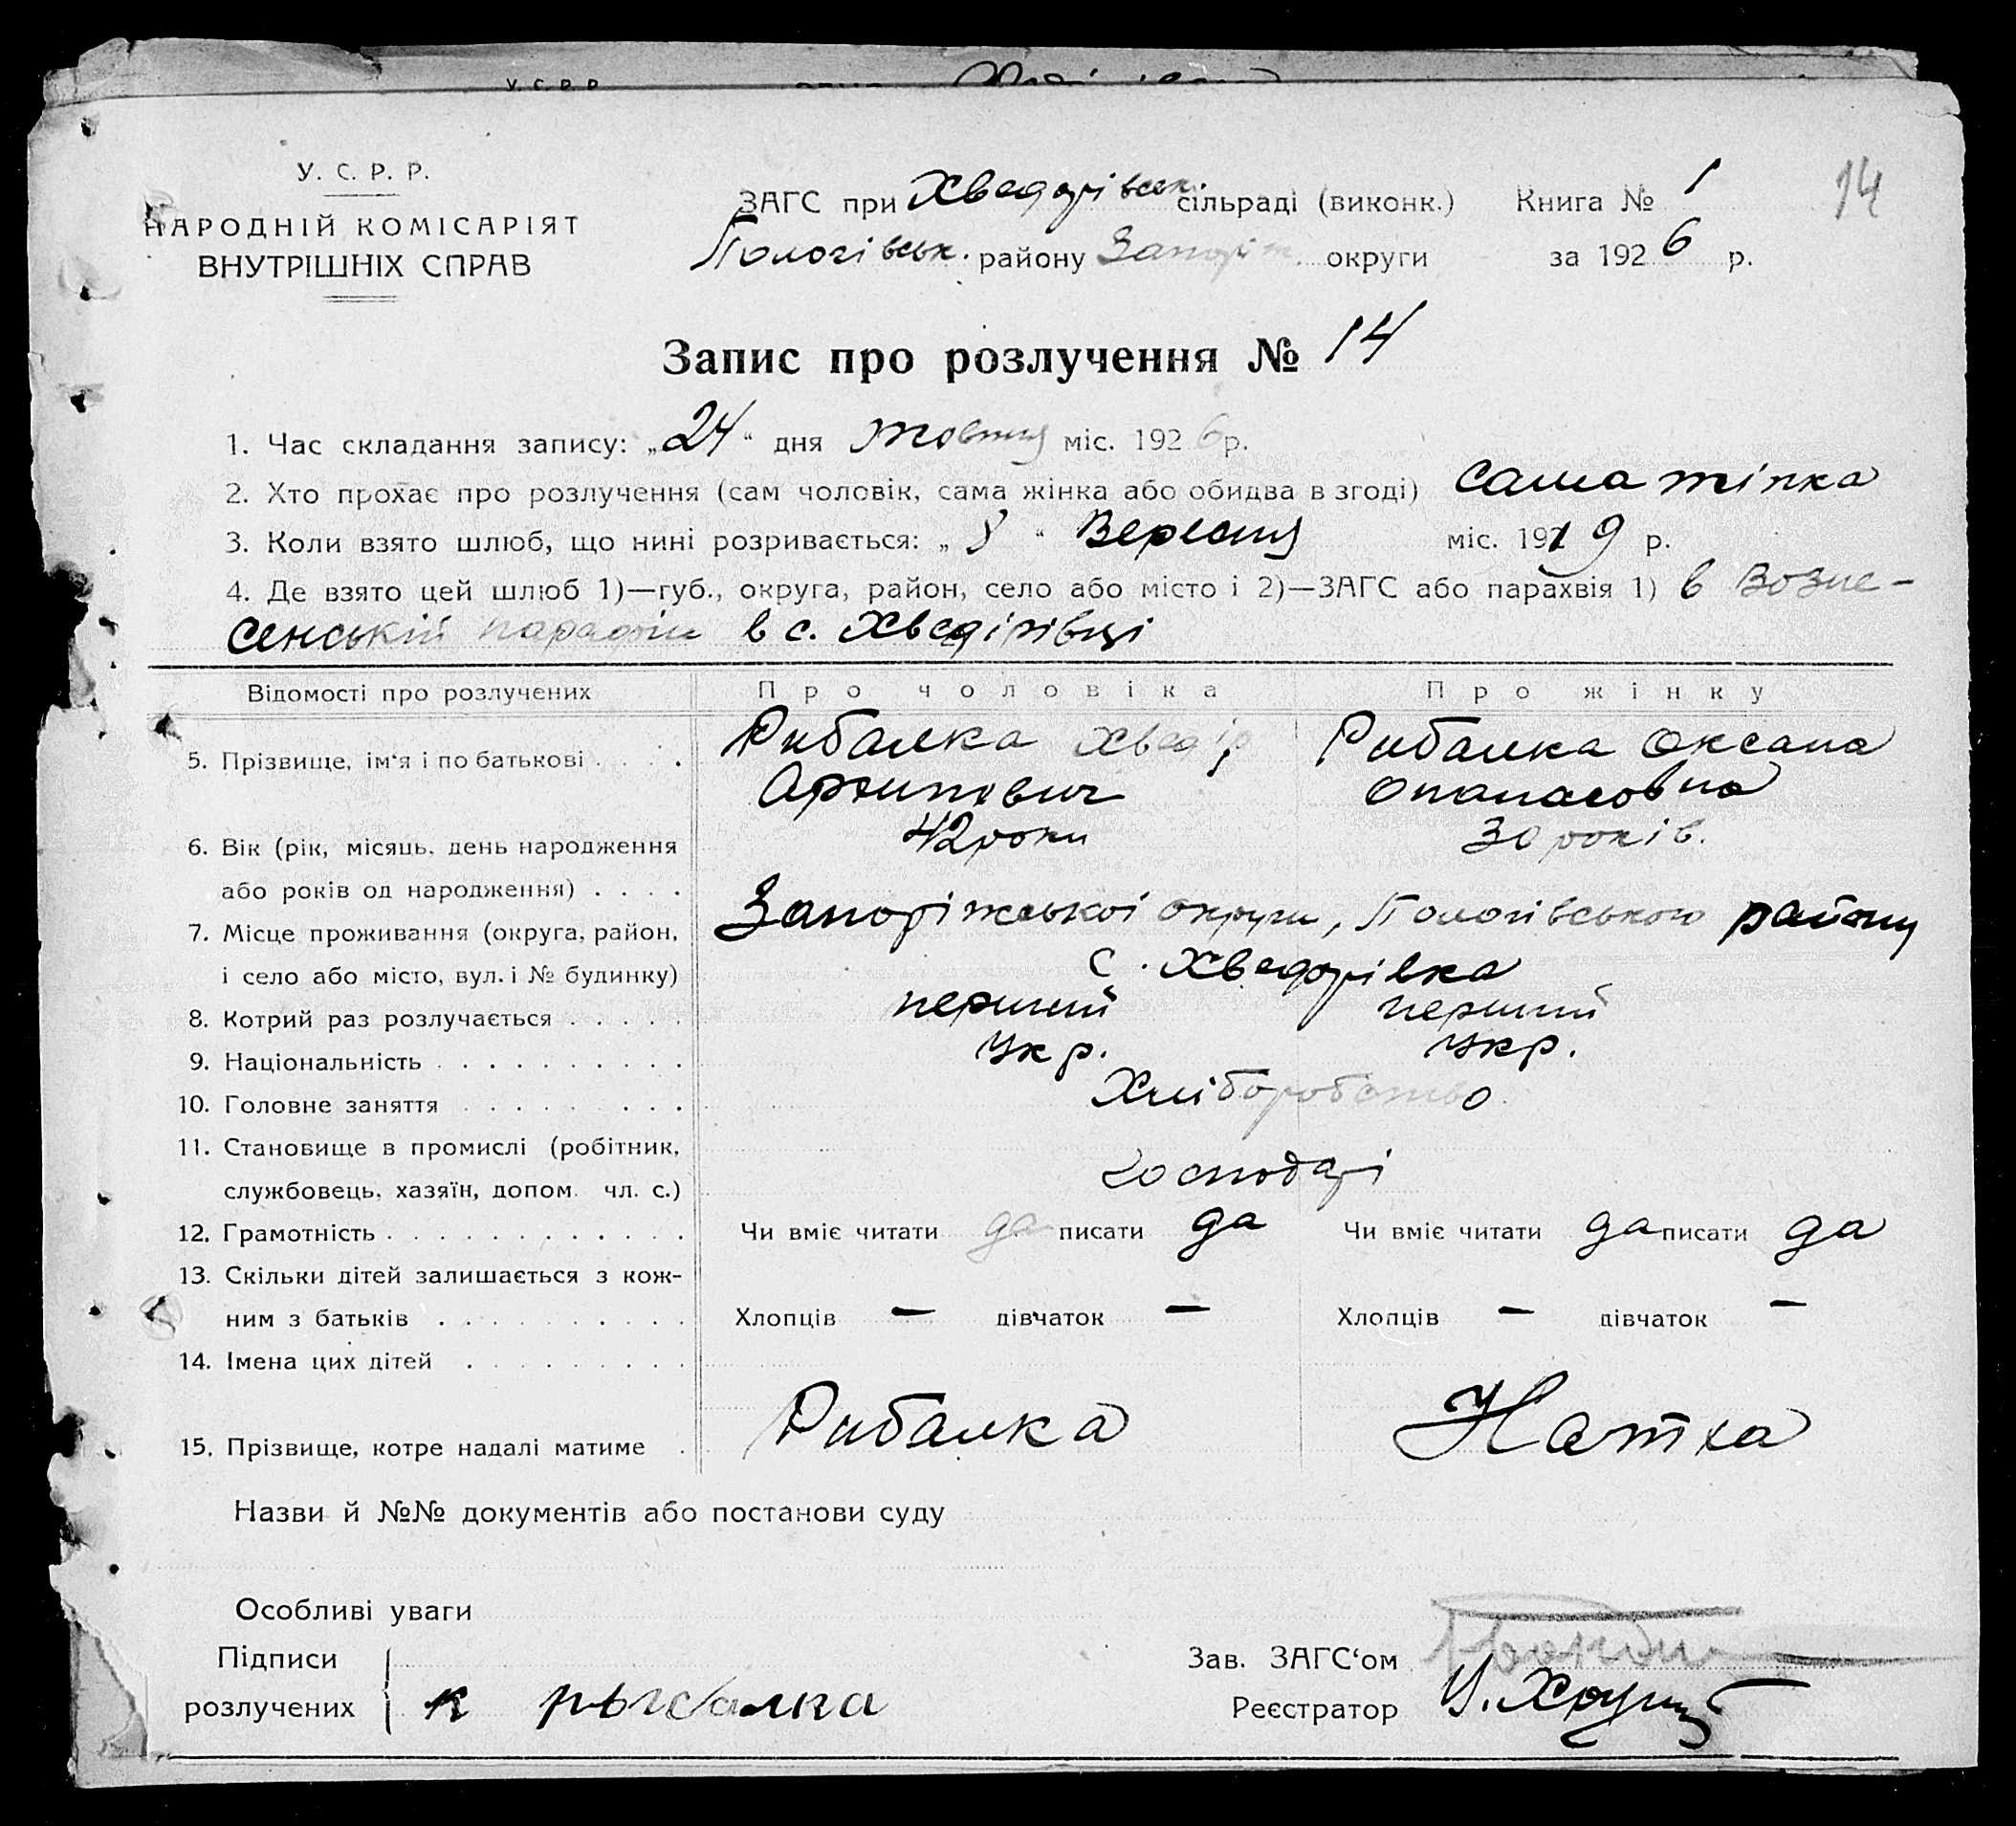 У. С. Р. Р.
НАРОДНІЙ КОМІСАРІЯТ
ВНУТРІШНІХ СПРАВ
ЗАГС при Хведорівськ. сільраді (виконк.) Книга № 1 14
Пологівськ. району Запоріж. округи за 1926 р.
Запис про розлучення № 14
1. Час складання запису: „24“ дня жовтня міс. 1926 р.
2. Хто прохає про розлучення (сам чоловік, сама жінка або обидва в згоді) сама жінка
3. Коли взято шлюб, що нині розривається: „8“ Вересня міс. 1919 р.
4. Де взято цей шлюб 1)—губ., округа, район, село або місто і 2)—ЗАГС або парахвія 1) в Возне-
сенській парафії в с. Хведірівці
Відомості про розлучених Про чоловіка Про жінку
5. Прізвище, ім'я і по батькові Рибалка Хведір Рибалка Оксана
Архипович Опанасовна
6. Вік (рік, місяць, день народження 42 роки 30 років.
або років од народження)
7. Місце проживання (округа, район, Запоріжської округи, Пологівського району
і село або місто, вул. і № будинку) с. Хведорівка
8. Котрий раз розлучається перший перший
9. Національність Укр. Укр.
10. Головне заняття Хліборобство
11. Становище в промислі (робітник,
службовець, хазяїн, допом. чл. с.) господарі
12. Грамотність Чи вміє читати да писати да Чи вміє читати да писати да
13. Скільки дітей залишається з кож-
ним з батьків Хлопців — дівчаток — Хлопців — дівчаток —
14. Імена цих дітей
15. Прізвище, котре надалі матиме Рибалка
Назви й №№ документів або постанови суду
Особливі уваги
Підписи Зав. ЗАГС'ом
розлучених к рыбалка Реєстратор